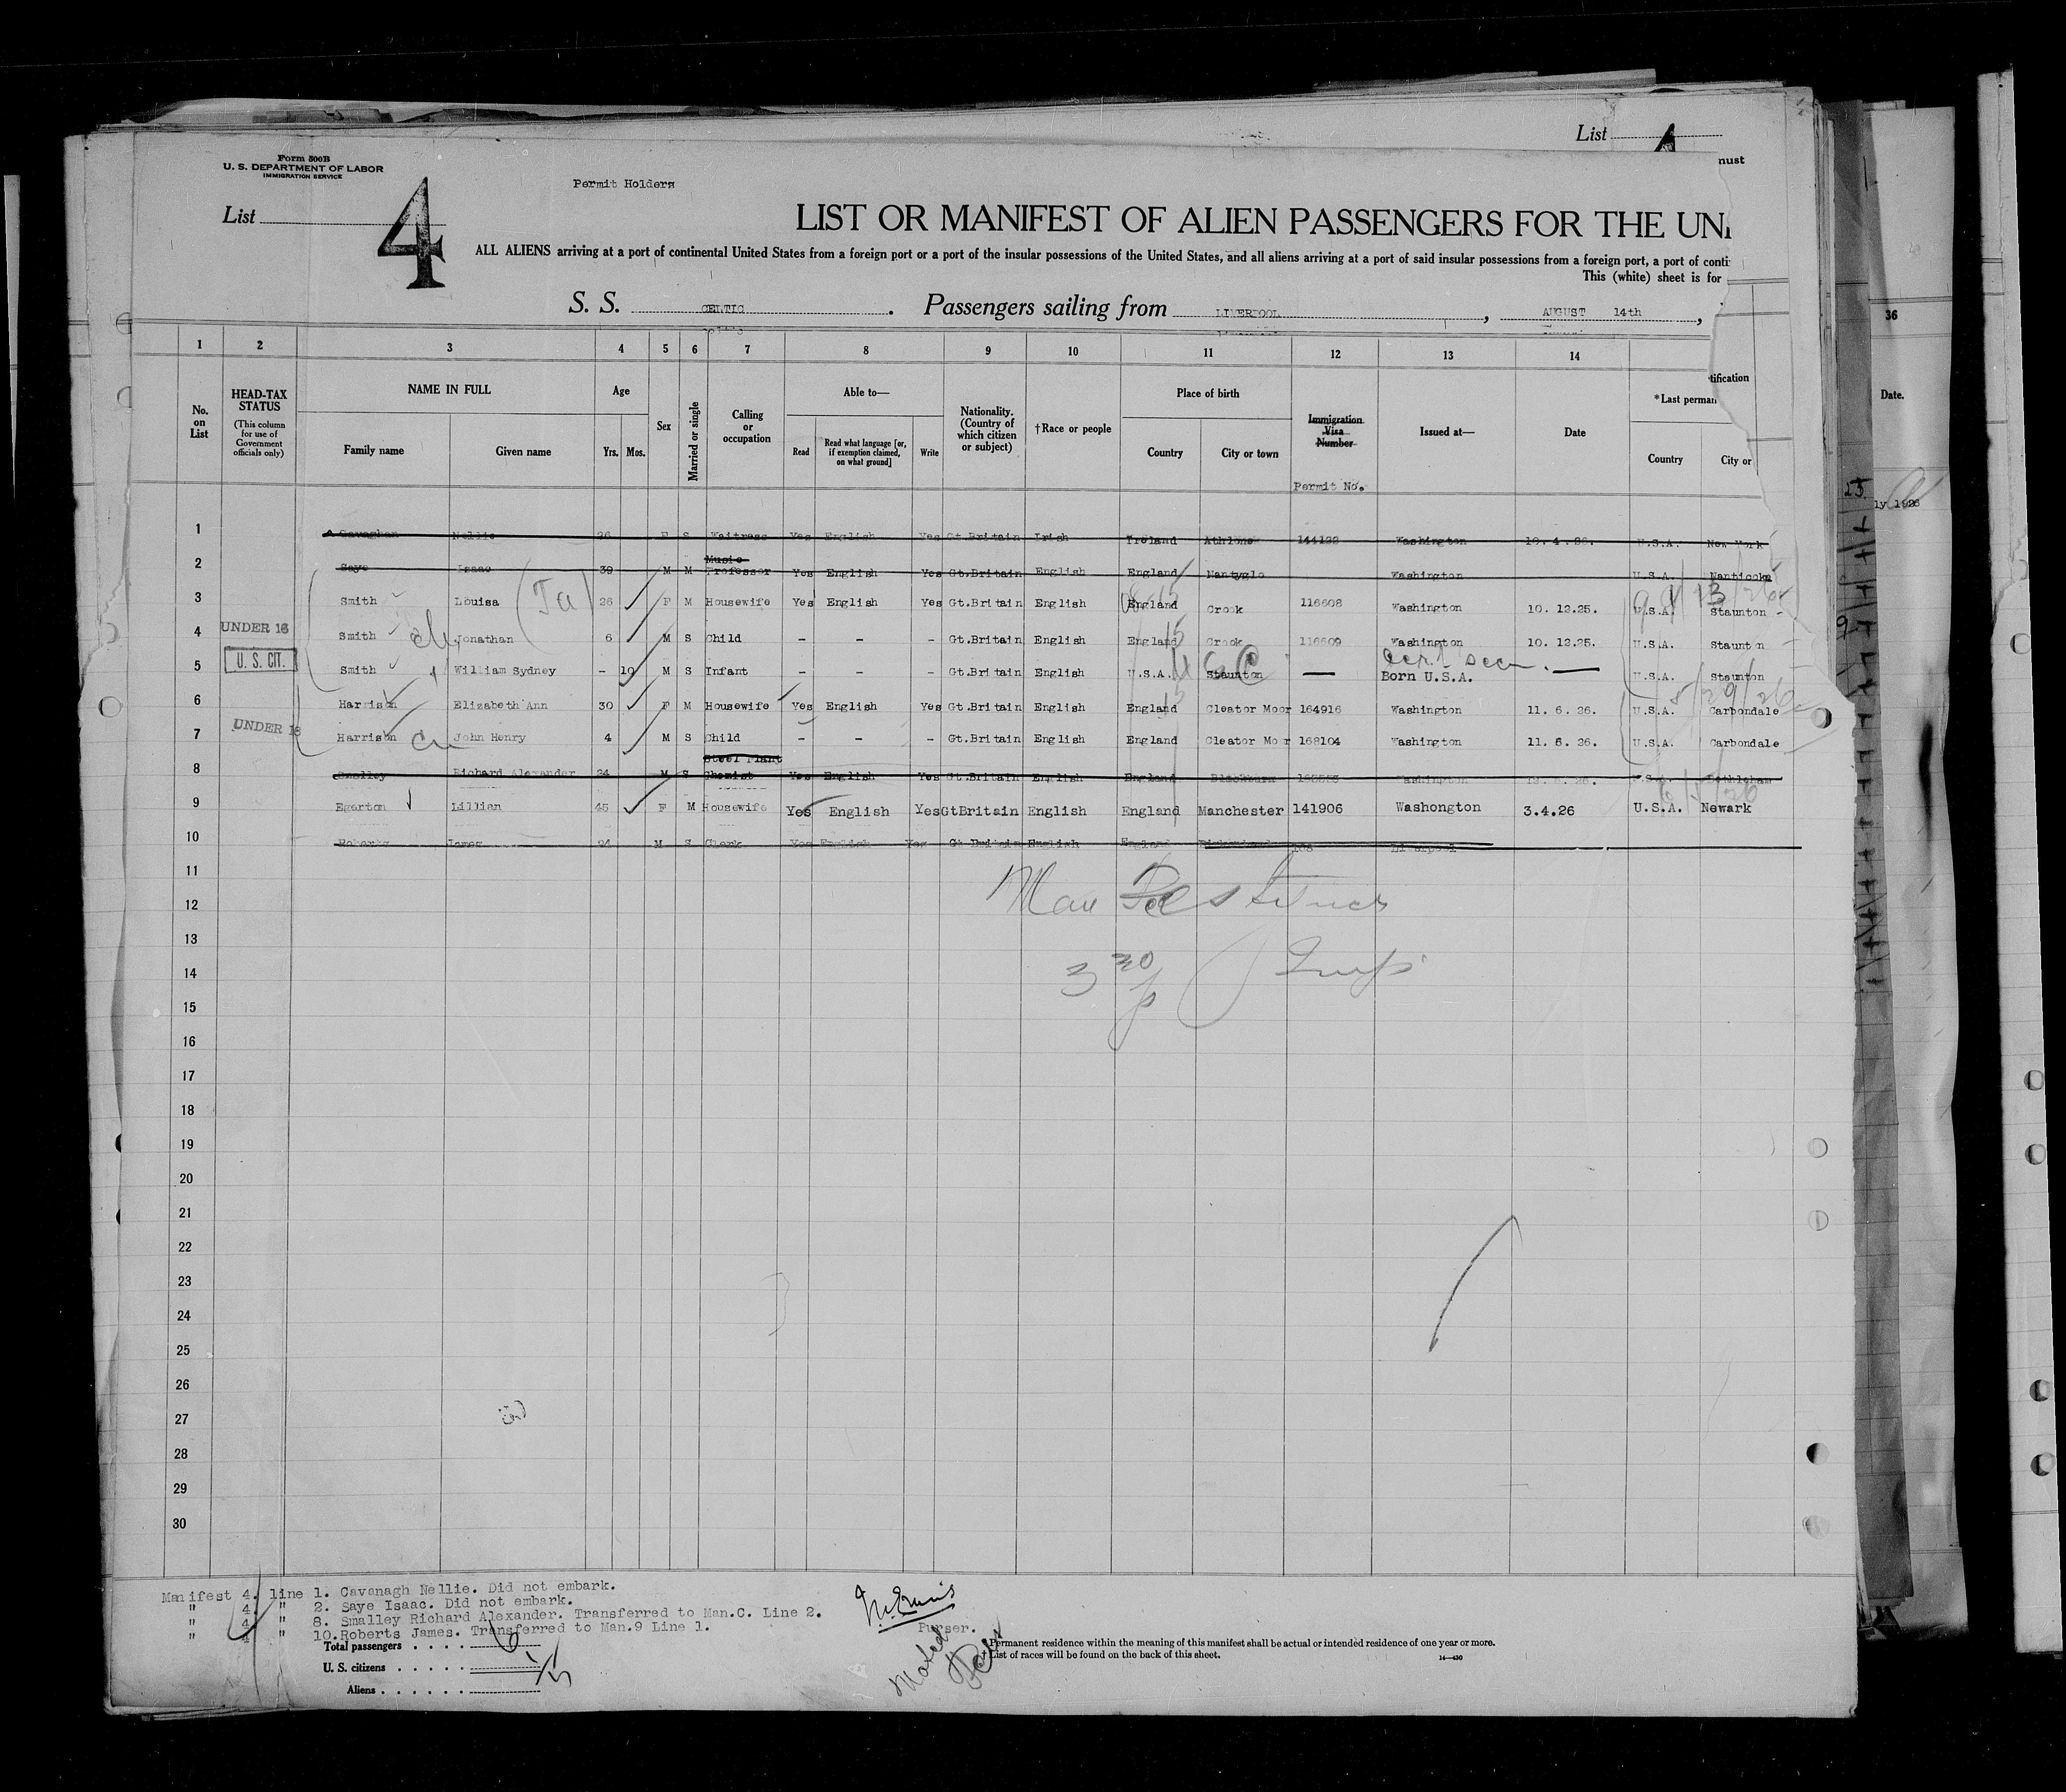 List
must
Form 500B
U. S. DEPARTMENT OF LABOR
IMMIGRATION SERVICE
Permit Holders
List 4
LIST OR MANIFEST OF ALIEN PASSENGERS FOR THE UNI
ALL ALIENS arriving at a port of continental United States from a foreign port or a port of the insular possessions of the United States, and all aliens arriving at a port of said insular possessions from a foreign port, a port of conti
This (white) sheet is for
S. S. CELTIC . Passengers sailing from LIVERPOOL , AUGUST 14th ,
36
1 2 3 4 5 6 7 8 9 10 11 12 13 14
No. on List
HEAD-TAX STATUS (This column for use of Government officials only)
NAME IN FULL
Family name Given name
Age
Yrs. Mos.
Sex
Married or single
Calling or occupation
Able to—
Read Read what language [or, if exemption claimed, on what ground] Write
Nationality. (Country of which citizen or subject)
†Race or people
Place of birth
Country City or town
Immigration Visa Number
Permit No.
Issued at—
Date
*Last perman
tification
Country City or
Date.
ly 1926
1 Cavaghan Nellie 26 F S Waitress Yes English Yes Gt.Britain Irish Ireland Athlone 144122 Washington 10. 4. 26. U.S.A. New York
2 Saye Isaac 39 M M Music Professor Yes English Yes Gt.Britain English England Nantyglo Washington U.S.A. Nanticoke
3 Smith Louisa 26 F M Housewife Yes English Yes Gt.Britain English England Crook 116608 Washington 10. 12.25. U.S.A. Staunton
4 UNDER 16 Smith Jonathan 6 M S Child - - - Gt.Britain English England Crook 116609 Washington 10. 12.25. U.S.A. Staunton
5 U. S. CIT. Smith William Sydney - 10 M S Infant - - - Gt.Britain English U.S.A. Staunton — Born U.S.A. — U.S.A. Staunton
6 Harrison Elizabeth Ann 30 F M Housewife Yes English Yes Gt.Britain English England Cleator Moor 164916 Washington 11. 6. 26. U.S.A. Carbondale
7 UNDER 16 Harrison John Henry 4 M S Child - - - Gt.Britain English England Cleator Mo r 168104 Washington 11. 6. 26. U.S.A. Carbondale
8 Smalley Richard Alexander 24 M S Steel Plant Chemist Yes English Yes Gt.Britain English England Blackburn Washington U.S.A. Bethlehem
9 Egerton Lillian 45 F M Housewife Yes English Yes GtBritain English England Manchester 141906 Washongton 3.4.26 U.S.A. Newark
10 Roberts James 24 M S Clerk Yes English Yes Gt.Britain English England Birkenhead Liverpool
11
12
13
14
15
16
17
18
19
20
21
22
23
24
25
26
27
28
29
30
Manifest 4. line 1. Cavanagh Nellie. Did not embark.
" 4. " 2. Saye Isaac. Did not embark.
" 4 " 8. Smalley Richard Alexander. Transferred to Man.C. Line 2.
" 4 " 10.Roberts James. Transferred to Man.9 Line 1.
Purser.
Total passengers . . . . 6
U. S. citizens . . . . . 1
Aliens . . . . . . 5
*Permanent residence within the meaning of this manifest shall be actual or intended residence of one year or more.
†List of races will be found on the back of this sheet.
14—430